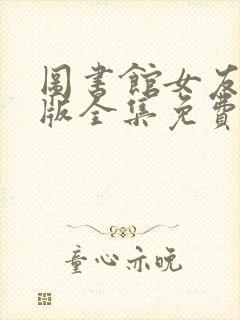 圖書館女友
版全集免費
童心亦晚